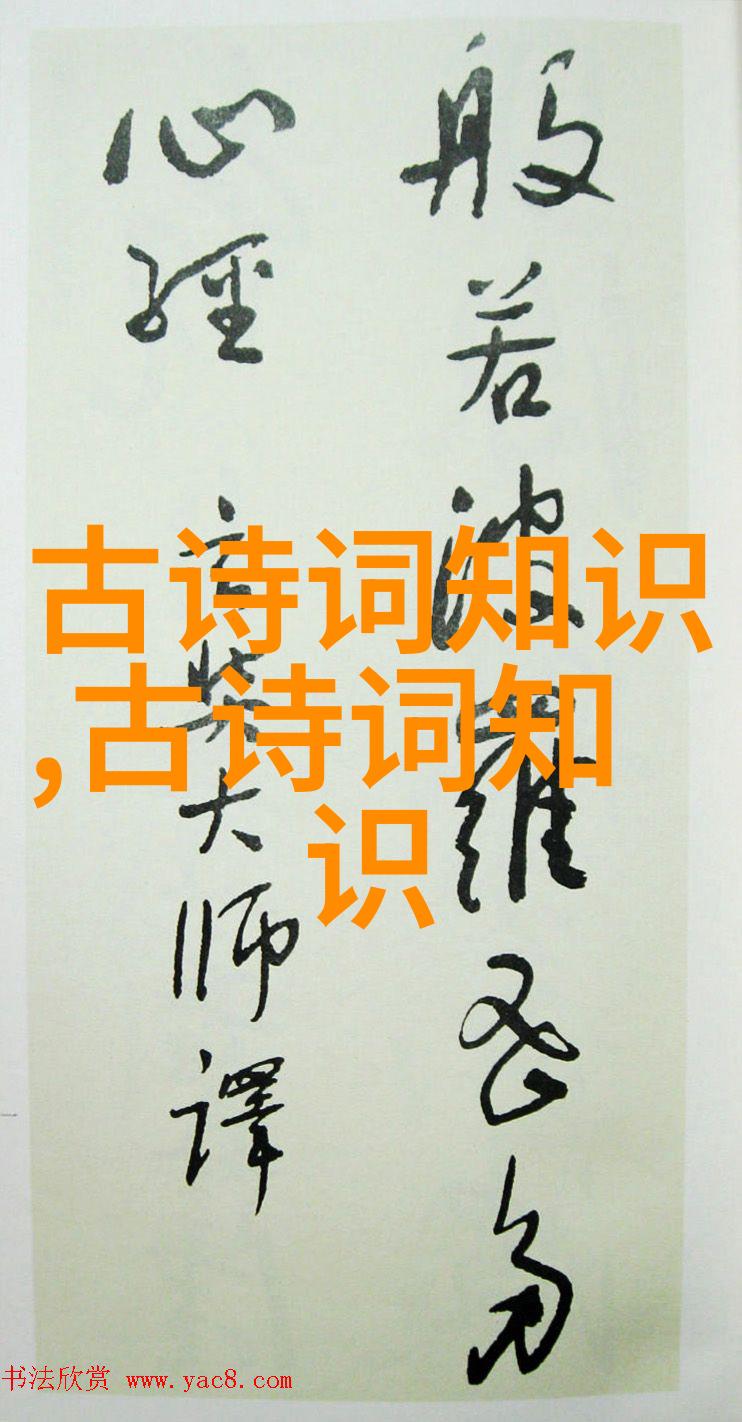 般若波羅蜜多
心经 玄奘大师譯
古诗词知识
,古诗词知
识
书法欣赏 www.yac8.com